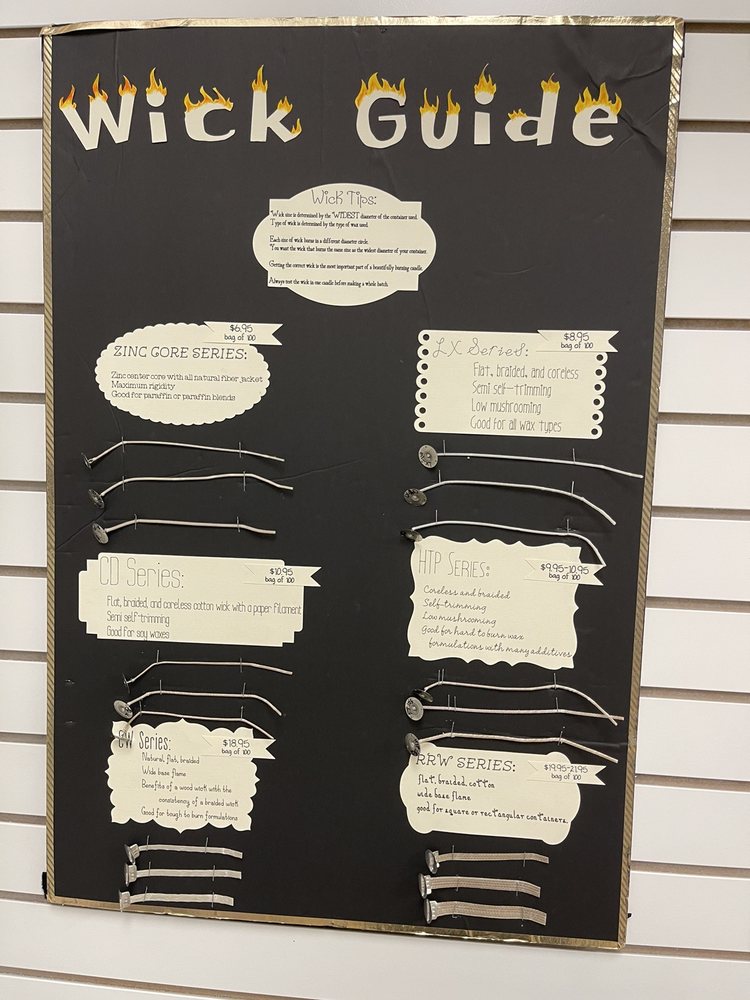 Wick Guide
Wick Tips:
Wick size is determined by the "WIDEST diameter of the container used.
Type of wick is determined by the type of wax used.
Each size of wick burns in a different diameter circle.
You want the wick that burns the same size as the widest diameter of your container.
Getting the correct wick is the most important part of a beautifully burning candle.
Always test the wick in one candle before making a whole batch.
$6.95
bag of 100
ZINC CORE SERIES:
Zinc center core with all natural fiber jacket
Maximum rigidity
Good for paraffin or paraffin blends
$8.95
bag of 100
LX Series:
Flat, braided, and coreless
Semi self-trimming
Low mushrooming
Good for all wax types
$10.95
bag of 100
CD Series:
Flat, braided, and coreless cotton wick with a paper filament
Semi self-trimming
Good for soy waxes
$9.95-10.95
bag of 100
HTP SERIES:
Coreless and braided
Self-trimming
Low mushrooming
Good for hard to burn wax
formulations with many additives
$18.95
bag of 100
CW Series:
Natural, flat, braided
Wide base flame
Benefits of a wood wick with the
consistency of a braided wick
Good for tough to burn formulations
$19.95-21.95
bag of 100
RRW SERIES:
flat, braided, cotton
wide base flame
good for square or rectangular containers.